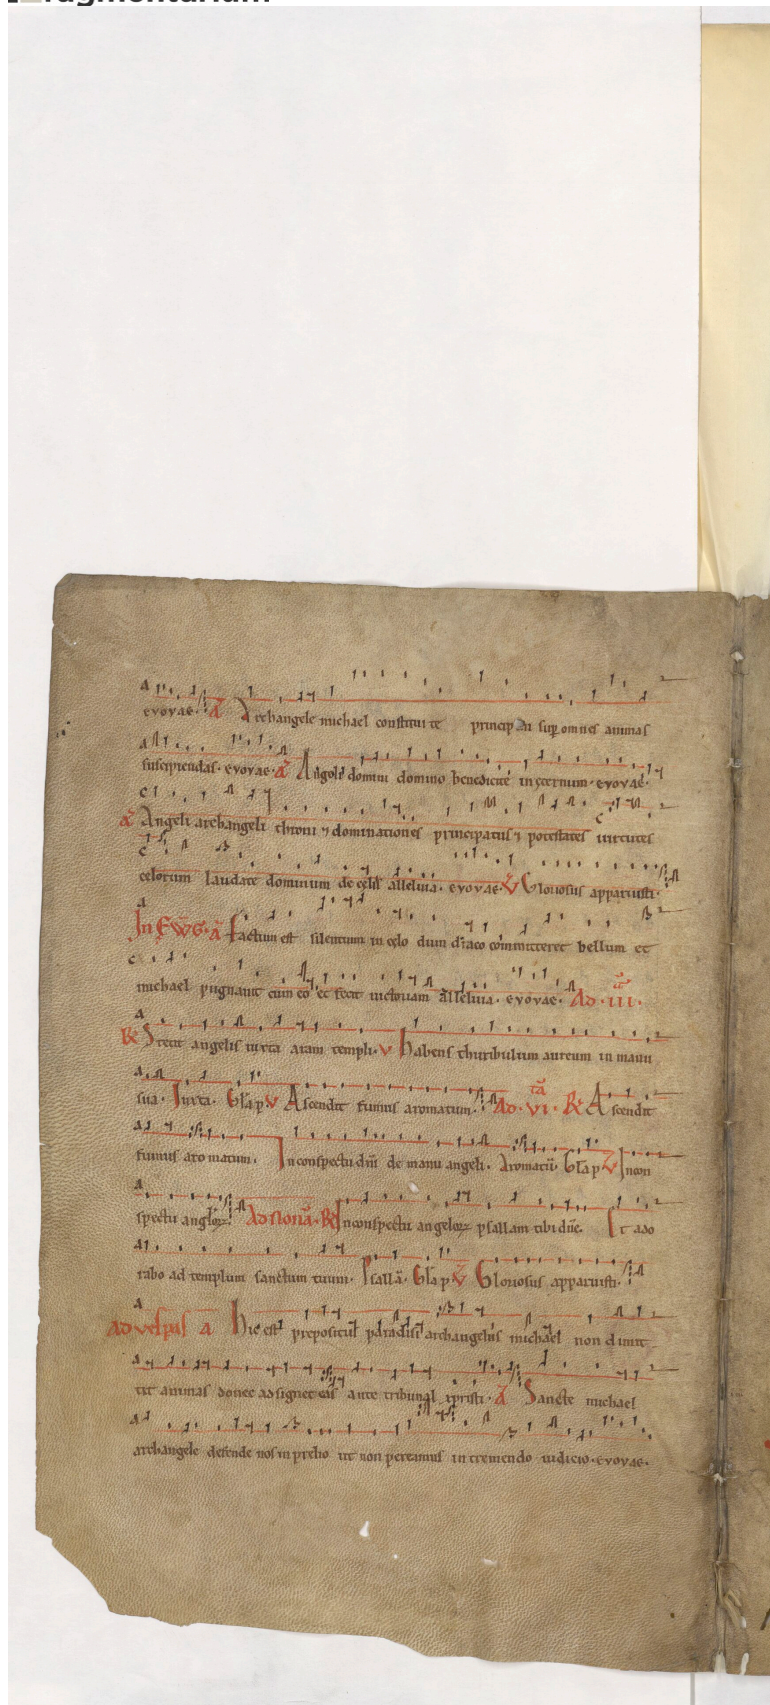 fragmentarium
evovae · A Archangele michael constitui te princip em sup omnes animas
suscipiendas · evovae · A Angeli domini domino benedicite in eternum · evovae ·
A Angeli archangeli throni ⁊ dominationes principatus ⁊ potestates virtutes
celorum laudate dominum de celis alleluia · evovae · V Gloriosus apparuisti ·
In EWG · A factum est silentium in celo dum draco committeret bellum et
michael pugnavit cum eo et fecit victoriam alleluia · evovae · Ad · III ·
R Stetit angelus iuxta aram templi · V habens thuribulum aureum in manu
sua · Iuxta · Gla p V Ascendit fumus aromatum · Ad · VI · R Ascendit
fumus aro matum · In conspectu dni de manu angeli · Aromatu · Gla p V Incon
spectu angloꝝ · Ad nona · R In conspectu angeloꝝ psallam tibi dne · Et ado
rabo ad templum sanctum tuum · Psalla · Gla p V Gloriosus apparuisti ·
Ad vesperas A hic est prepositus paradisi archangelus michael non dimit
tit animas donec adsignet eas ante tribunal xpristi · A Sancte michael
archangele defende nos in prelio ut non pereamus in tremendo iudicio · evovae ·